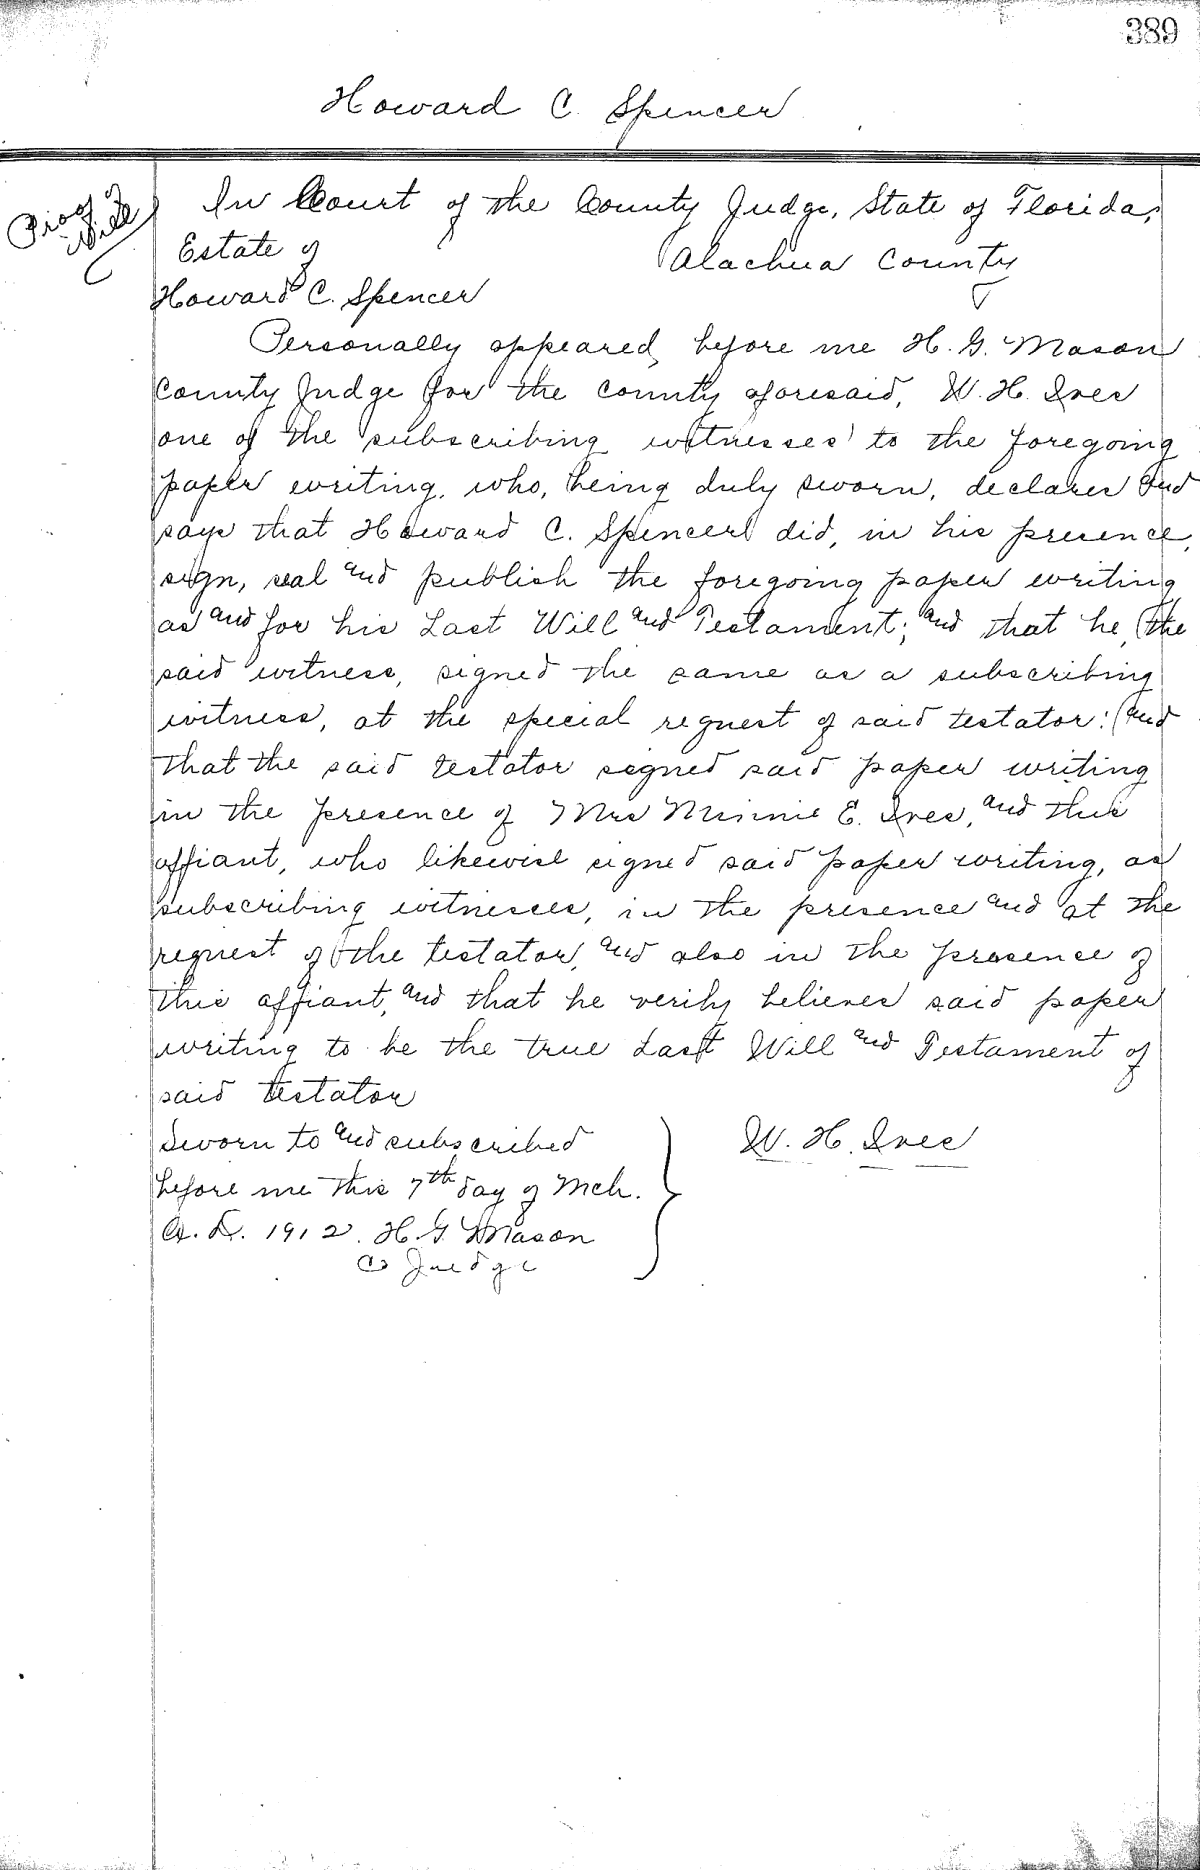 389
Howard C. Spencer
Proof of
Will
In Court of the County Judge, State of Florida,
Estate of
Alachua County
Howard C. Spencer
Personally appeared, before me H. G. Mason
County Judge for the county aforesaid, W. H. Ives
one of the subscribing witnesses to the foregoing
paper writing, who, being duly sworn, declares and
says that Howard C. Spencer did, in his presence,
sign, seal and publish the foregoing paper writing
as and for his Last Will and Testament; and that he, the
said witness, signed the same as a subscribing
witness, at the special request of said testator: and
that the said testator signed said paper writing
in the presence of Mrs Minnie E. Ives, and this
affiant, who likewise signed said paper writing, as
subscribing witnesses, in the presence and at the
request of the testator, and also in the presence of
this affiant, and that he verily believes said paper
writing to be the true Last Will and Testament of
said testator
Sworn to and subscribed
before me this 7th day of Mch.
A. D. 1912. H. G. Mason
Co Judge
W. H. Ives